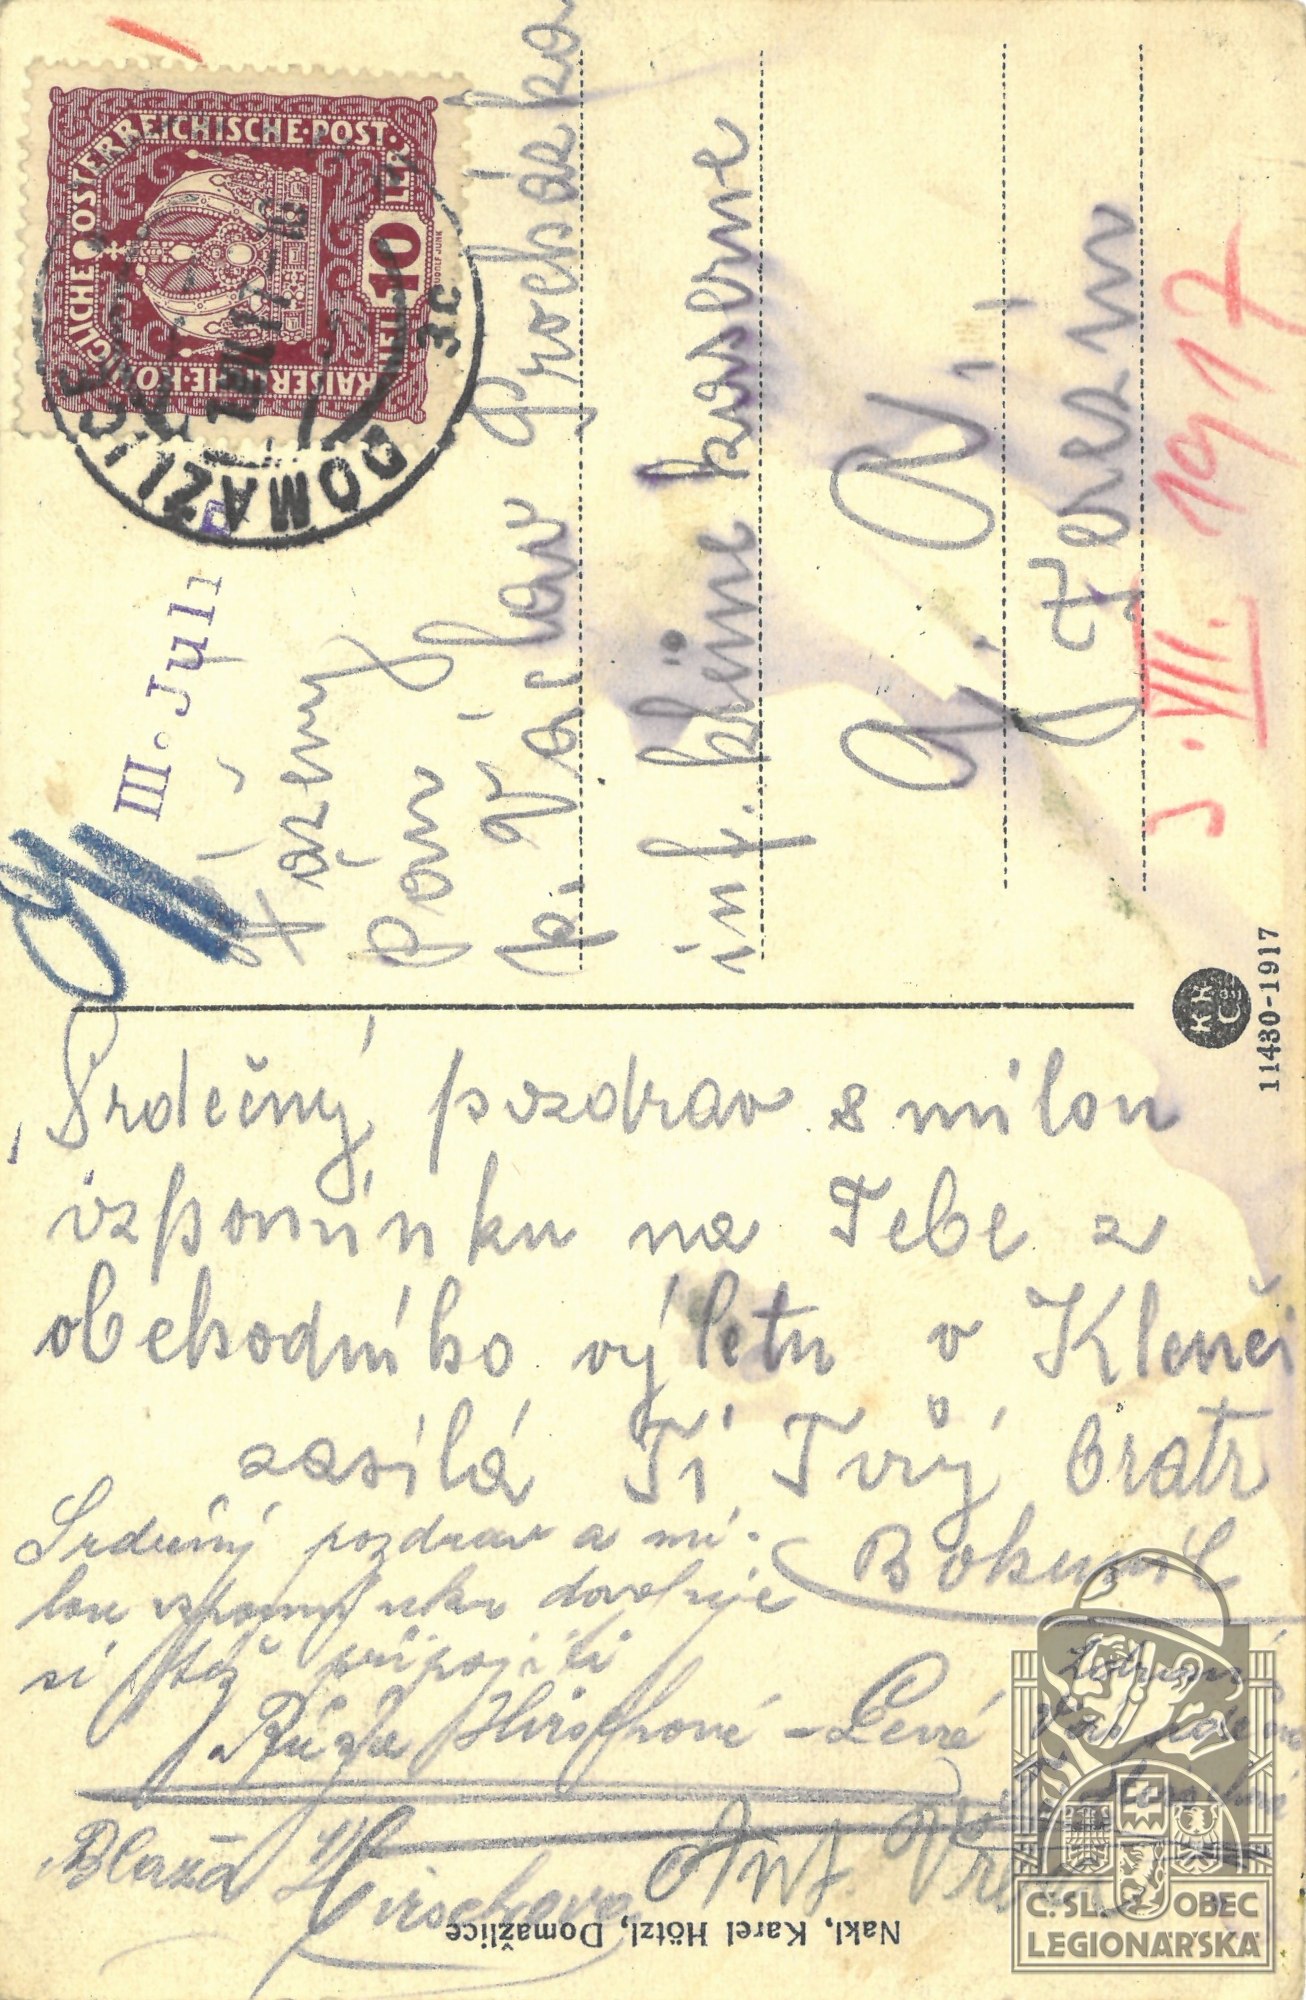 KAISERLICHE·KÖNIGLICHE ÖSTERREICHISCHE·POST·
10
HELLER
DOMAŽLICE
3c
III. Juli
Vážený
Pan
p. Váslav Procházka
inf. kleine kaserne
G. R.
Terezín
5. VII. 1917
11430-1917
Srdečný pozdrav s milou
vzpomínku na Tebe z
obchodního výletu v Klenčí
zasílá Ti Tvůj bratr
Bohumil
Srdečný pozdrav a mi-
lou vzpomínku dovoluje
si též připojiti
Růža Hirschová
Blaža Hirschova
Ant.
Nakl. Karel Hötzl, Domažlice.
Č: SL. OBEC
LEGIONÁŘSKÁ